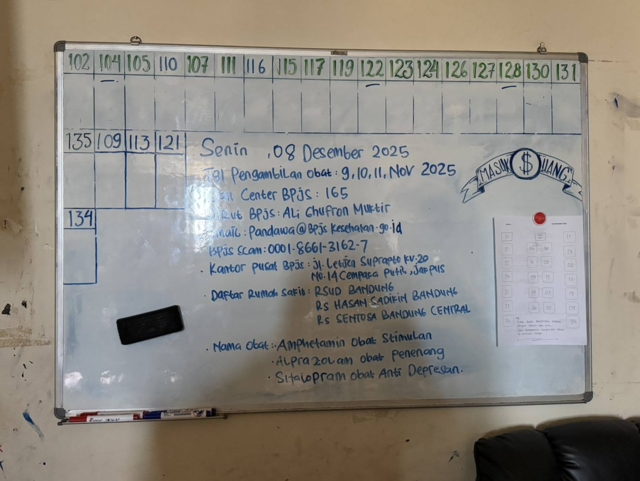 102 104 105 110 107 111 116 115 117 119 122 123 124 126 127 128 130 131
135 109 113 121
134
Senin , 08 Desember 2025
Tgl Pengambilan Obat : 9, 10, 11, Nov 2025
Center BPJS : 165
BPJS : Ali Ghufron Muktir
: Pandawa@Bpjs Kesehatan.go.id
BPJS Scam : 0001-8661-3162-7
. Kantor pusat BPJS : Jl. Letjen Suprapto kv.20
No.14 Cempaka Putih, Jakpus
. Daftar Rumah Sakit : RSUD BANDUNG
RS HASAN SADIKIN BANDUNG
RS SENTOSA BANDUNG CENTRAL
. Nama Obat : . Amphetamin Obat Stimulan
. Alprazolam obat Penenang
. Sitalopram obat Anti Depresan.
MASUK $ UANG